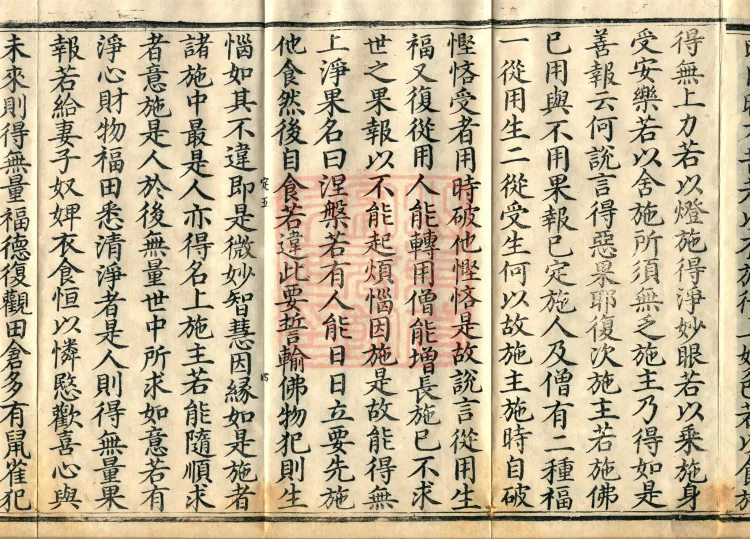 得無上力若以燈施得淨妙眼若以乘施身
受安樂若以舍施所須無乏施主乃得如是
善報云何說言得惡果耶復次施主若施佛
已用與不用果報已定施人及僧有二種福
一從用生二從受生何以故施主施時自破
慳悋受者用時破他慳悋是故說言從用生
福又復從用人能轉用僧能增長施已不求
世之果報以不能起煩惱因施是故能得無
上淨果名曰涅槃若有人能日日立要先施
他食然後自食若違此要誓輸佛物犯則生
定五
惱如其不違即是微妙智慧因緣如是施者
諸施中最是人亦得名上施主若能隨順求
者意施是人於後無量世中所求如意若有
淨心財物福田悉清淨者是人則得無量果
報若給妻子奴婢衣食恒以憐愍歡喜心與
未來則得無量福德復觀田倉多有鼠雀犯